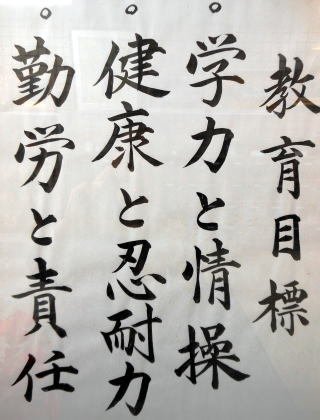 教育目標
。学力と情操
。健康と忍耐力
。勤労と責任